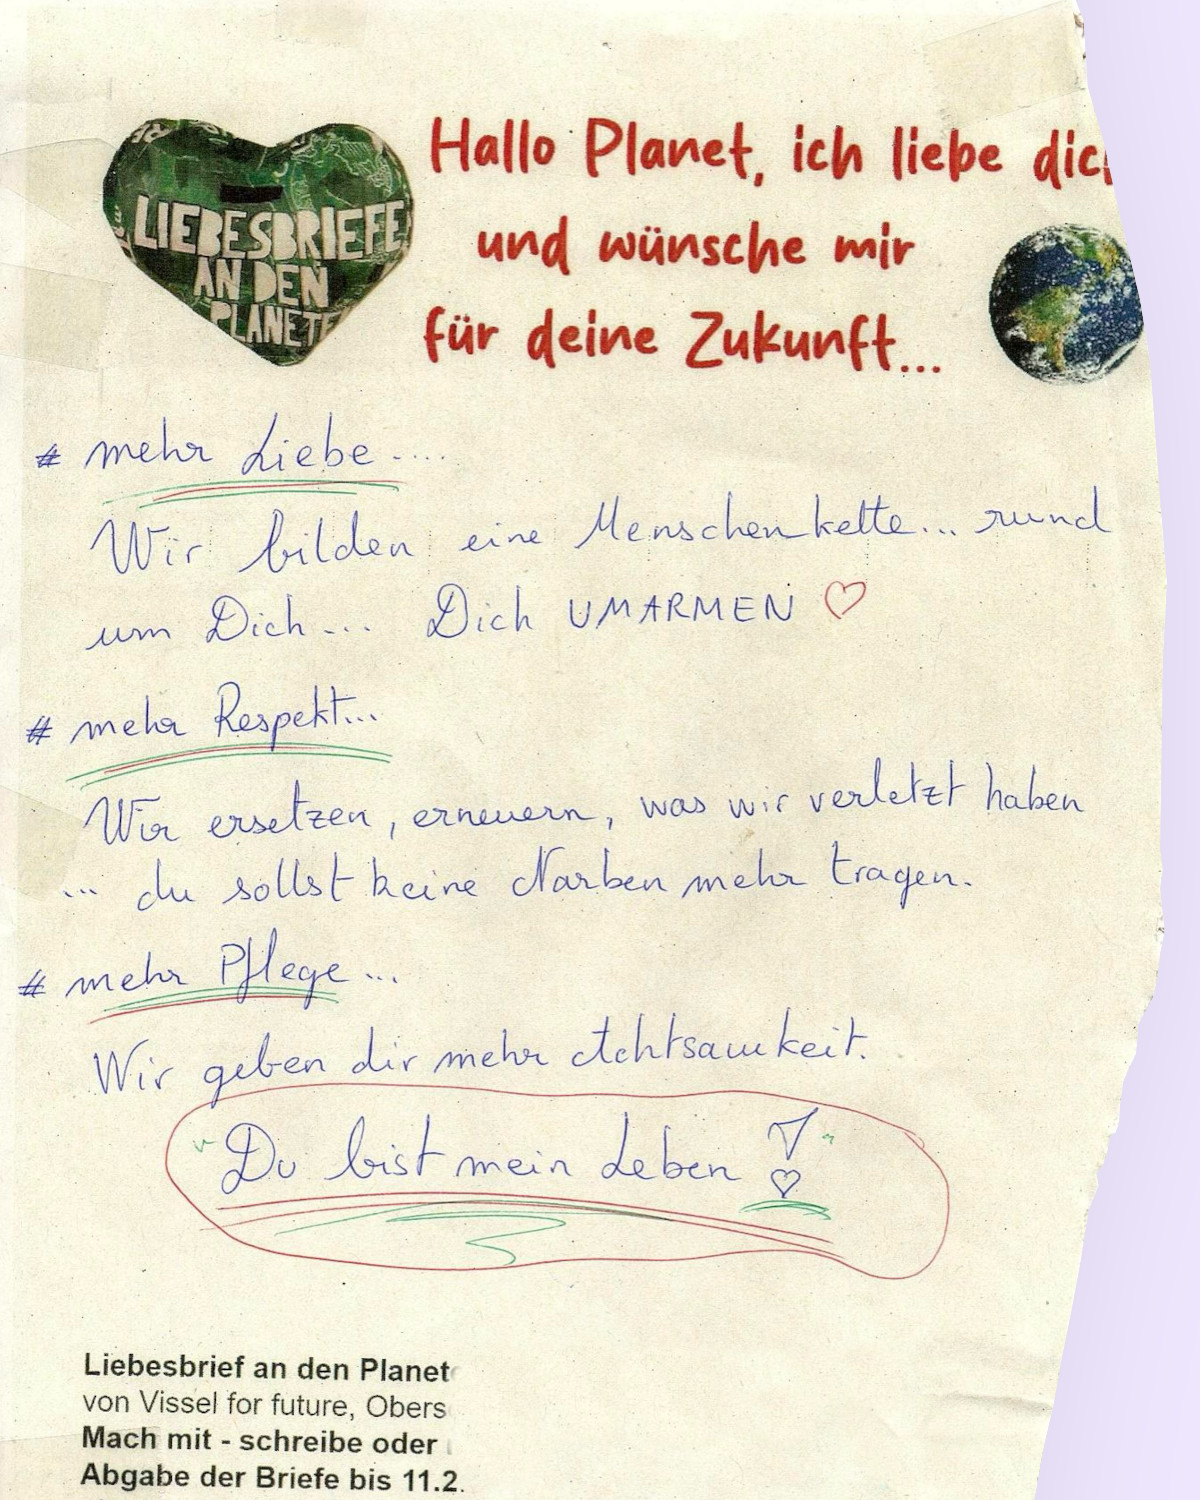 LIEBESBRIEFE
AN DEN
PLANETE
Hallo Planet, ich liebe dich
und wünsche mir
für deine Zukunft...
# mehr Liebe....
Wir bilden eine Menschenkette... rund
um Dich... Dich UMARMEN ♡
# mehr Respekt...
Wir ersetzen, erneuern, was wir verletzt haben
... du sollst keine Narben mehr tragen.
# mehr Pflege...
Wir geben dir mehr Achtsamkeit.
"Du bist mein Leben!"
Liebesbrief an den Planet
von Vissel for future, Obers
Mach mit - schreibe oder
Abgabe der Briefe bis 11.2.